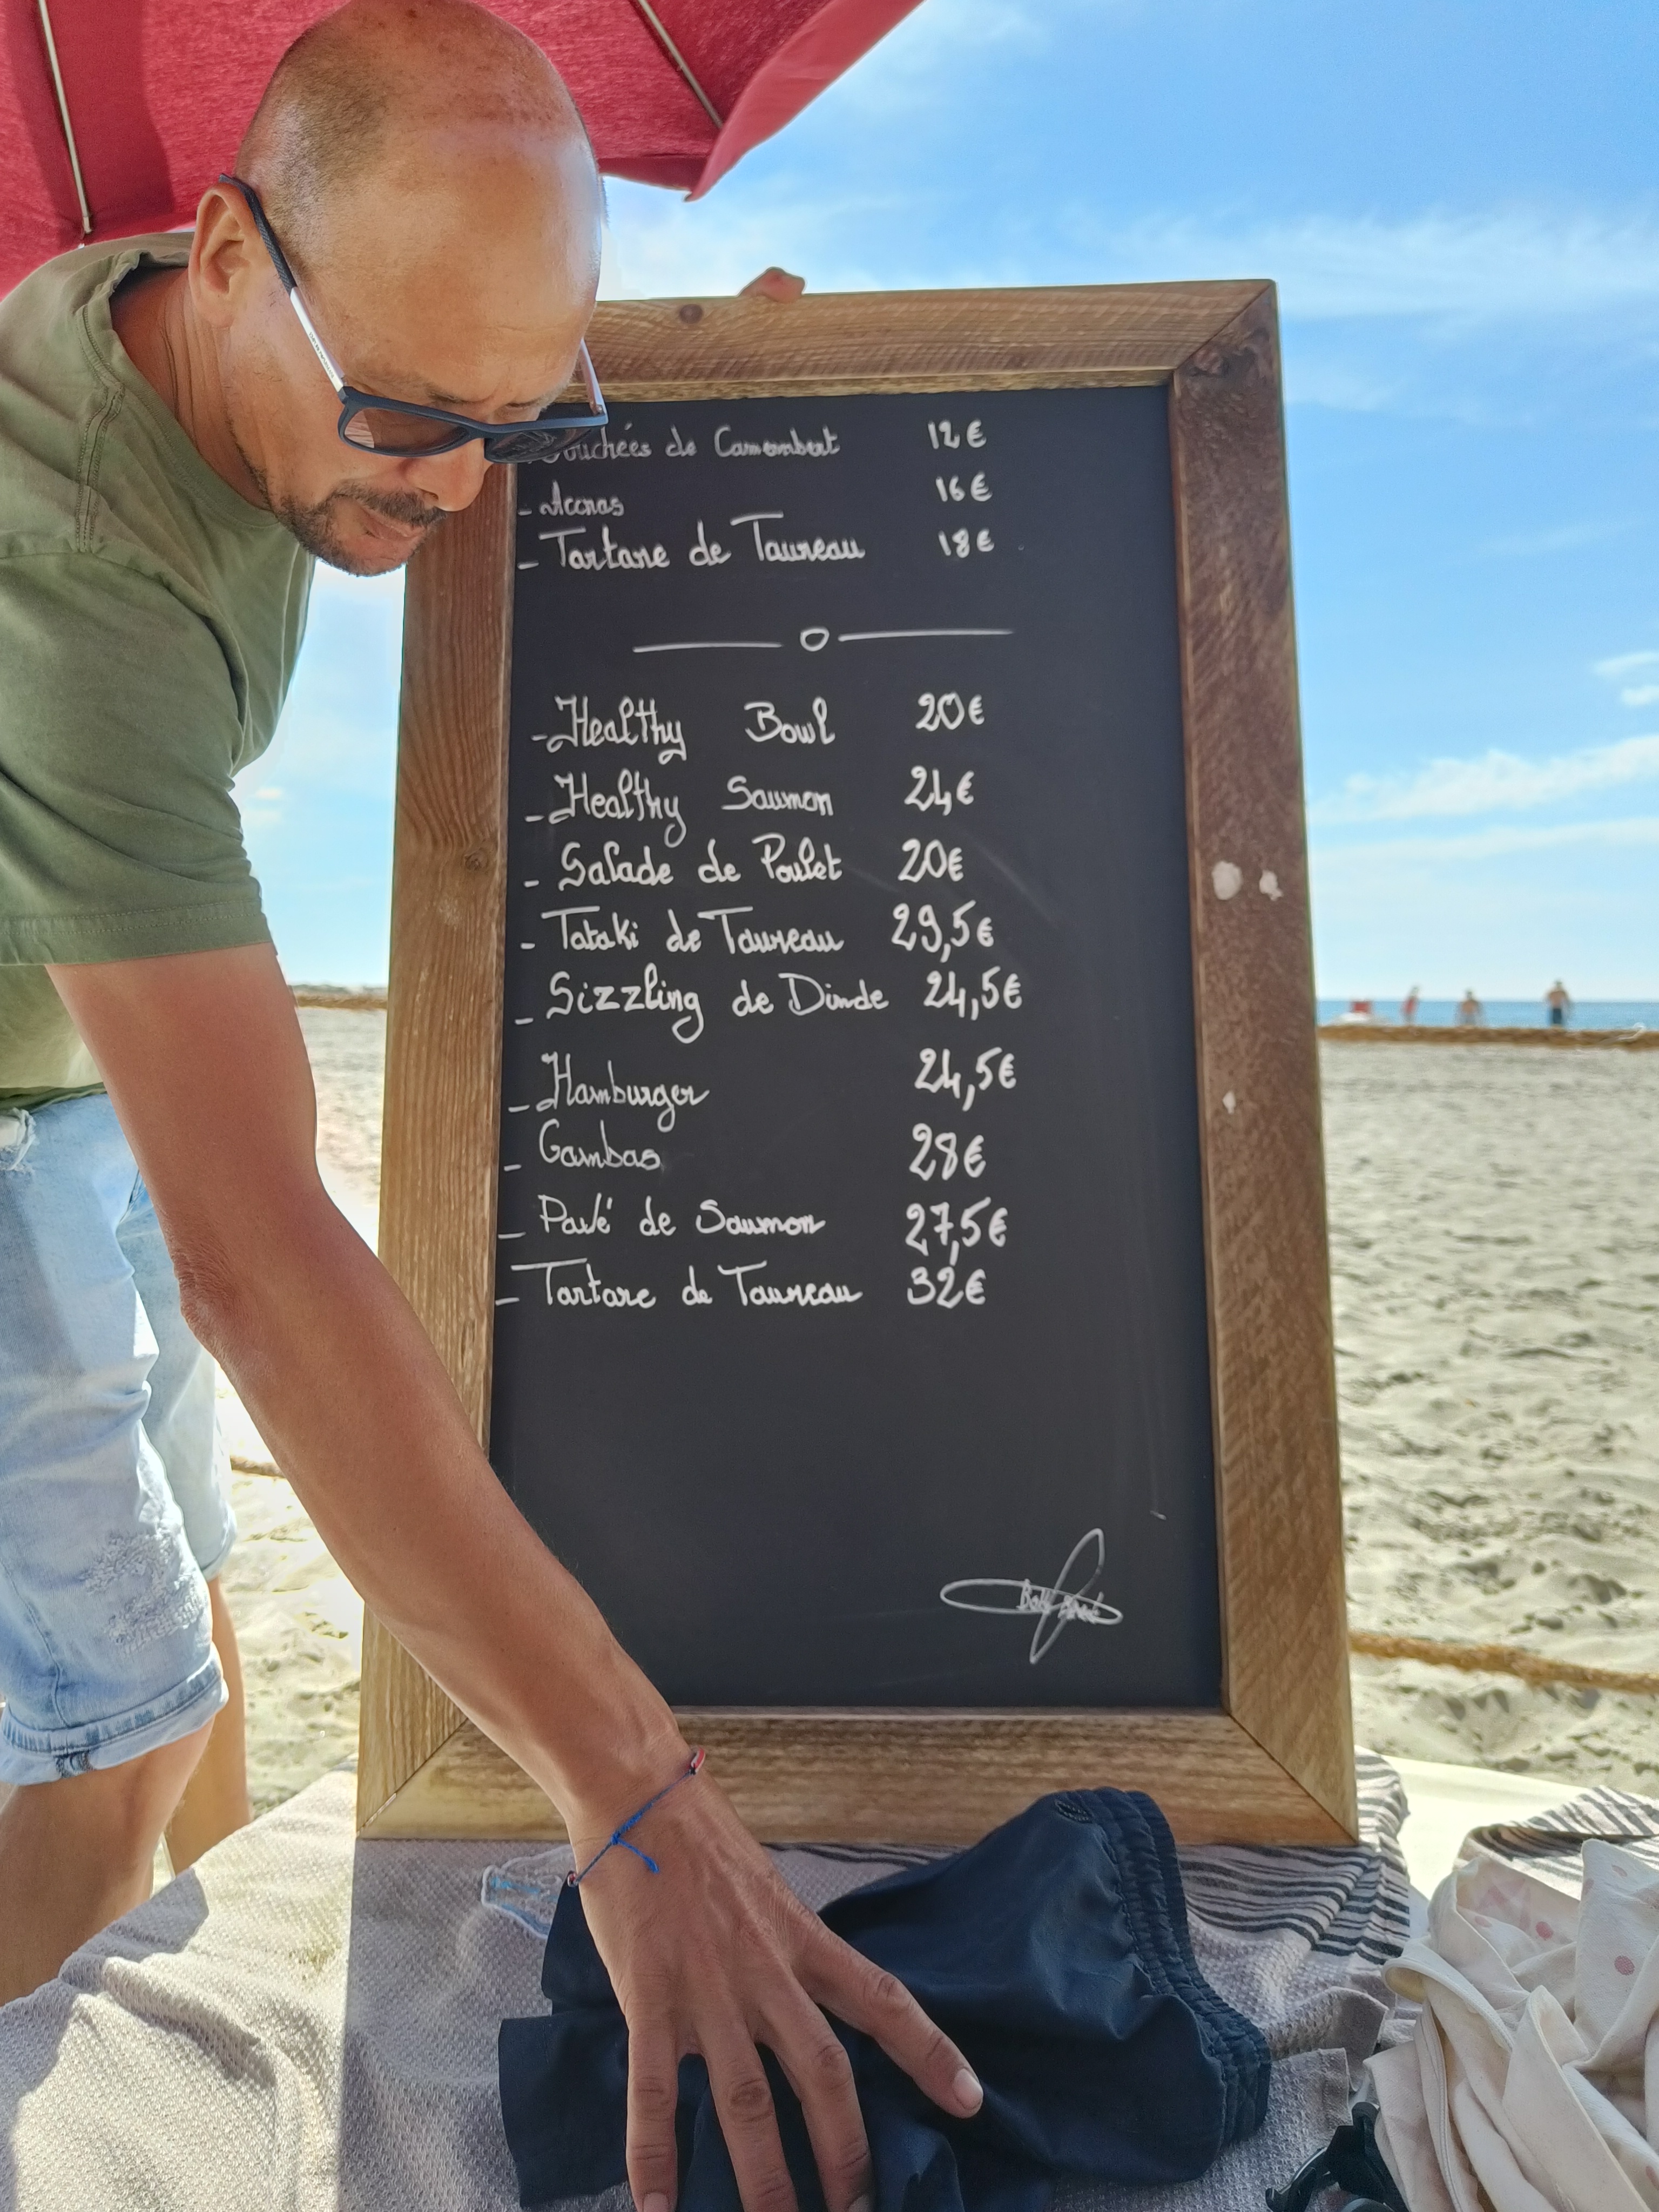 Bouchées de Camembert 12€
- Accras 16€
- Tartare de Taureau 18€
- Healthy Bowl 20€
- Healthy Saumon 24€
- Salade de Poulet 20€
- Tataki de Taureau 29,5€
- Sizzling de Dinde 24,5€
- Hamburger 24,5€
- Gambas 28€
- Pavé de Saumon 27,5€
- Tartare de Taureau 32€